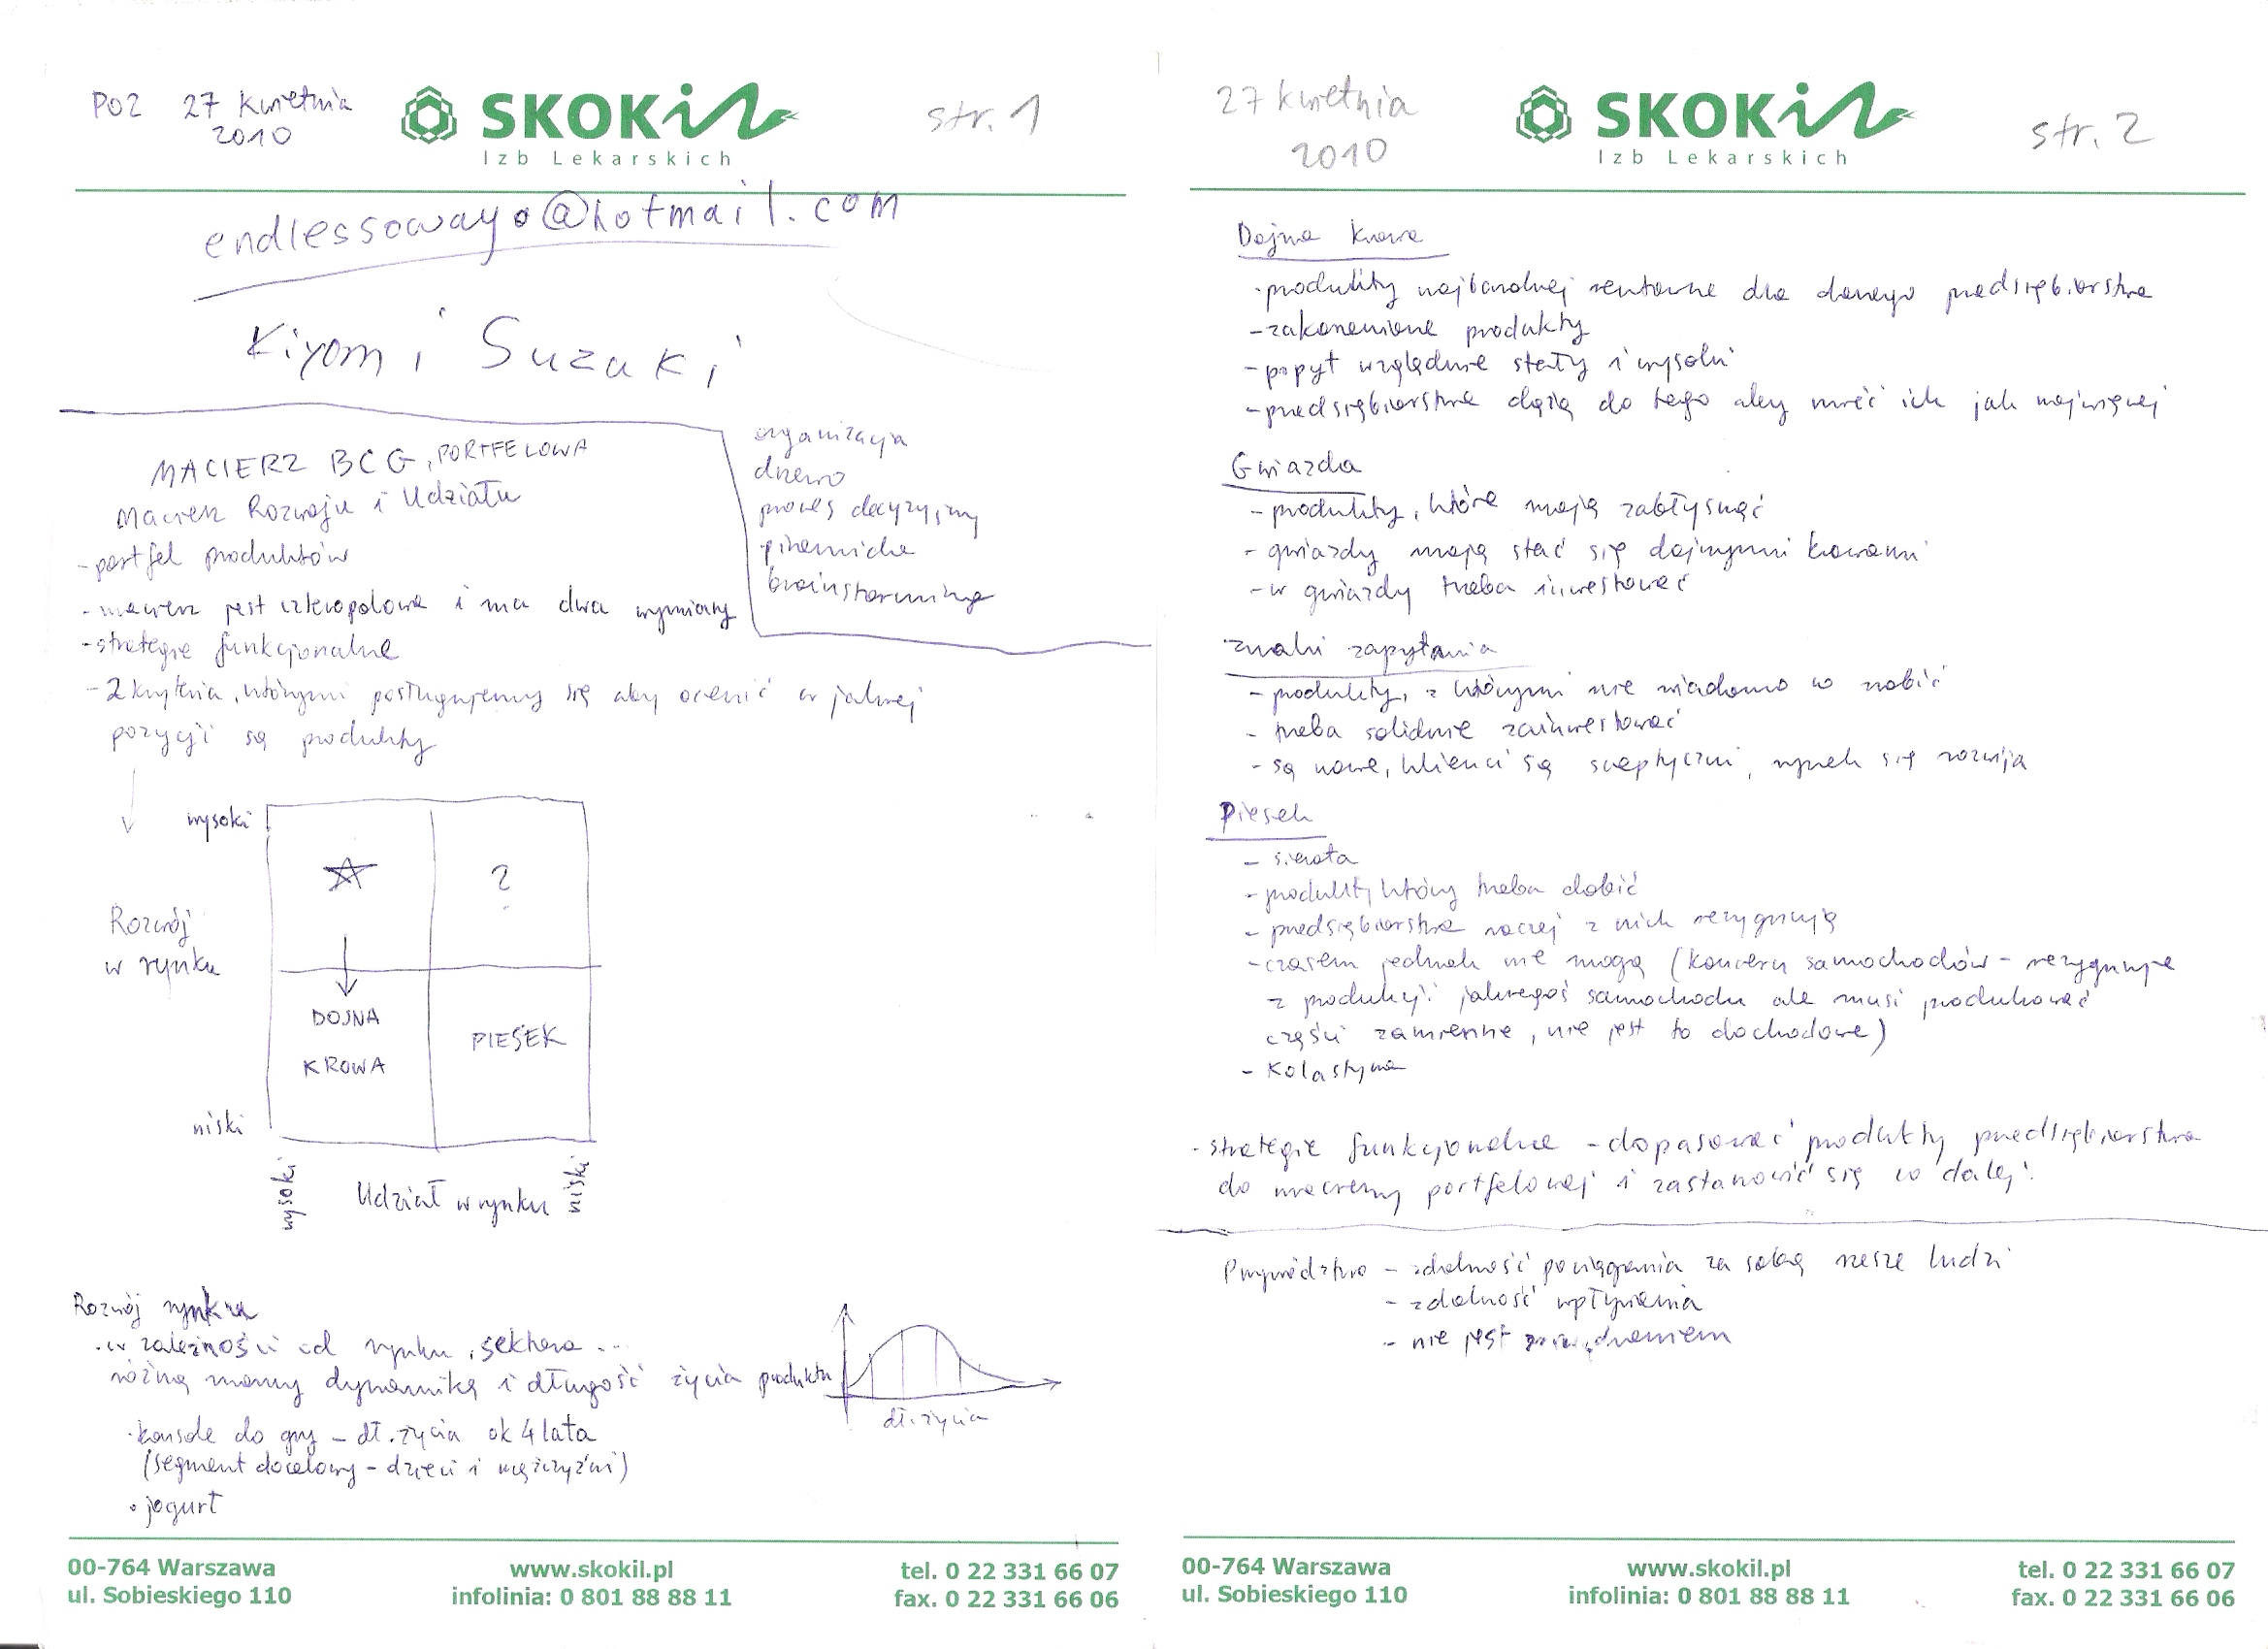 POZ 27 kwietnia
2010
SKOKiL
Izb Lekarskich
str. 1
endlessowayo@hotmail.com
Kiyomi Suzaki
MACIERZ BCG, PORTFELOWA
Macierz Rozwoju i Udziału
- portfel produktów
- macierz jest czteropolowa i ma dwa wymiary
- strategie funkcjonalne
- 2 kryteria, którymi posługujemy się aby ocenić w jakiej
pozycji są produkty
organizacja
drzewo
proces decyzyjny
piramida
brainstorming
wysoki
?
Rozwój
w rynku
DOJNA
KROWA
PIESEK
niski
wysoki
Udział w rynku
niski
Rozwój rynku
· w zależności od rynku, sektora...
różną mamy dynamikę i długość życia produktu
dł. życia
· konsole do gry - dł. życia ok 4 lata
(segment docelowy - dzieci i mężczyźni)
· jogurt
00-764 Warszawa
ul. Sobieskiego 110
www.skokil.pl
infolinia: 0 801 88 88 11
tel. 0 22 331 66 07
fax. 0 22 331 66 06
27 kwietnia
2010
SKOKiL
Izb Lekarskich
str. 2
Dojna krowa
- produkty najbardziej rentowne dla danego przedsiębiorstwa
- zakorzenione produkty
- popyt względnie stały i wysoki
- przedsiębiorstwa dążą do tego aby mieć ich jak najwięcej
Gwiazda
- produkty, które mają zabłysnąć
- gwiazdy mają stać się dojnymi krowami
- w gwiazdy trzeba inwestować
znaki zapytania
- produkty, z którymi nie wiadomo co zrobić
- trzeba solidnie zainwestować
- są nowe, klienci są sceptyczni, rynek się rozwija
Piesek
- sierota
- produkt, który trzeba dobić
- przedsiębiorstwa raczej z nich rezygnują
- czasem jednak nie mogą (koncern samochodów - rezygnuje
z produkcji jakiegoś samochodu ale musi produkować
części zamienne, nie jest to dochodowe)
- Kolastyna
- strategie funkcjonalne - dopasować produkty przedsiębiorstwa
do macierzy portfelowej i zastanowić się co dalej.
Przywództwo - zdolność pociągania za sobą rzesze ludzi
- zdolność wpłynienia
- nie jest zarządzaniem
00-764 Warszawa
ul. Sobieskiego 110
www.skokil.pl
infolinia: 0 801 88 88 11
tel. 0 22 331 66 07
fax. 0 22 331 66 06